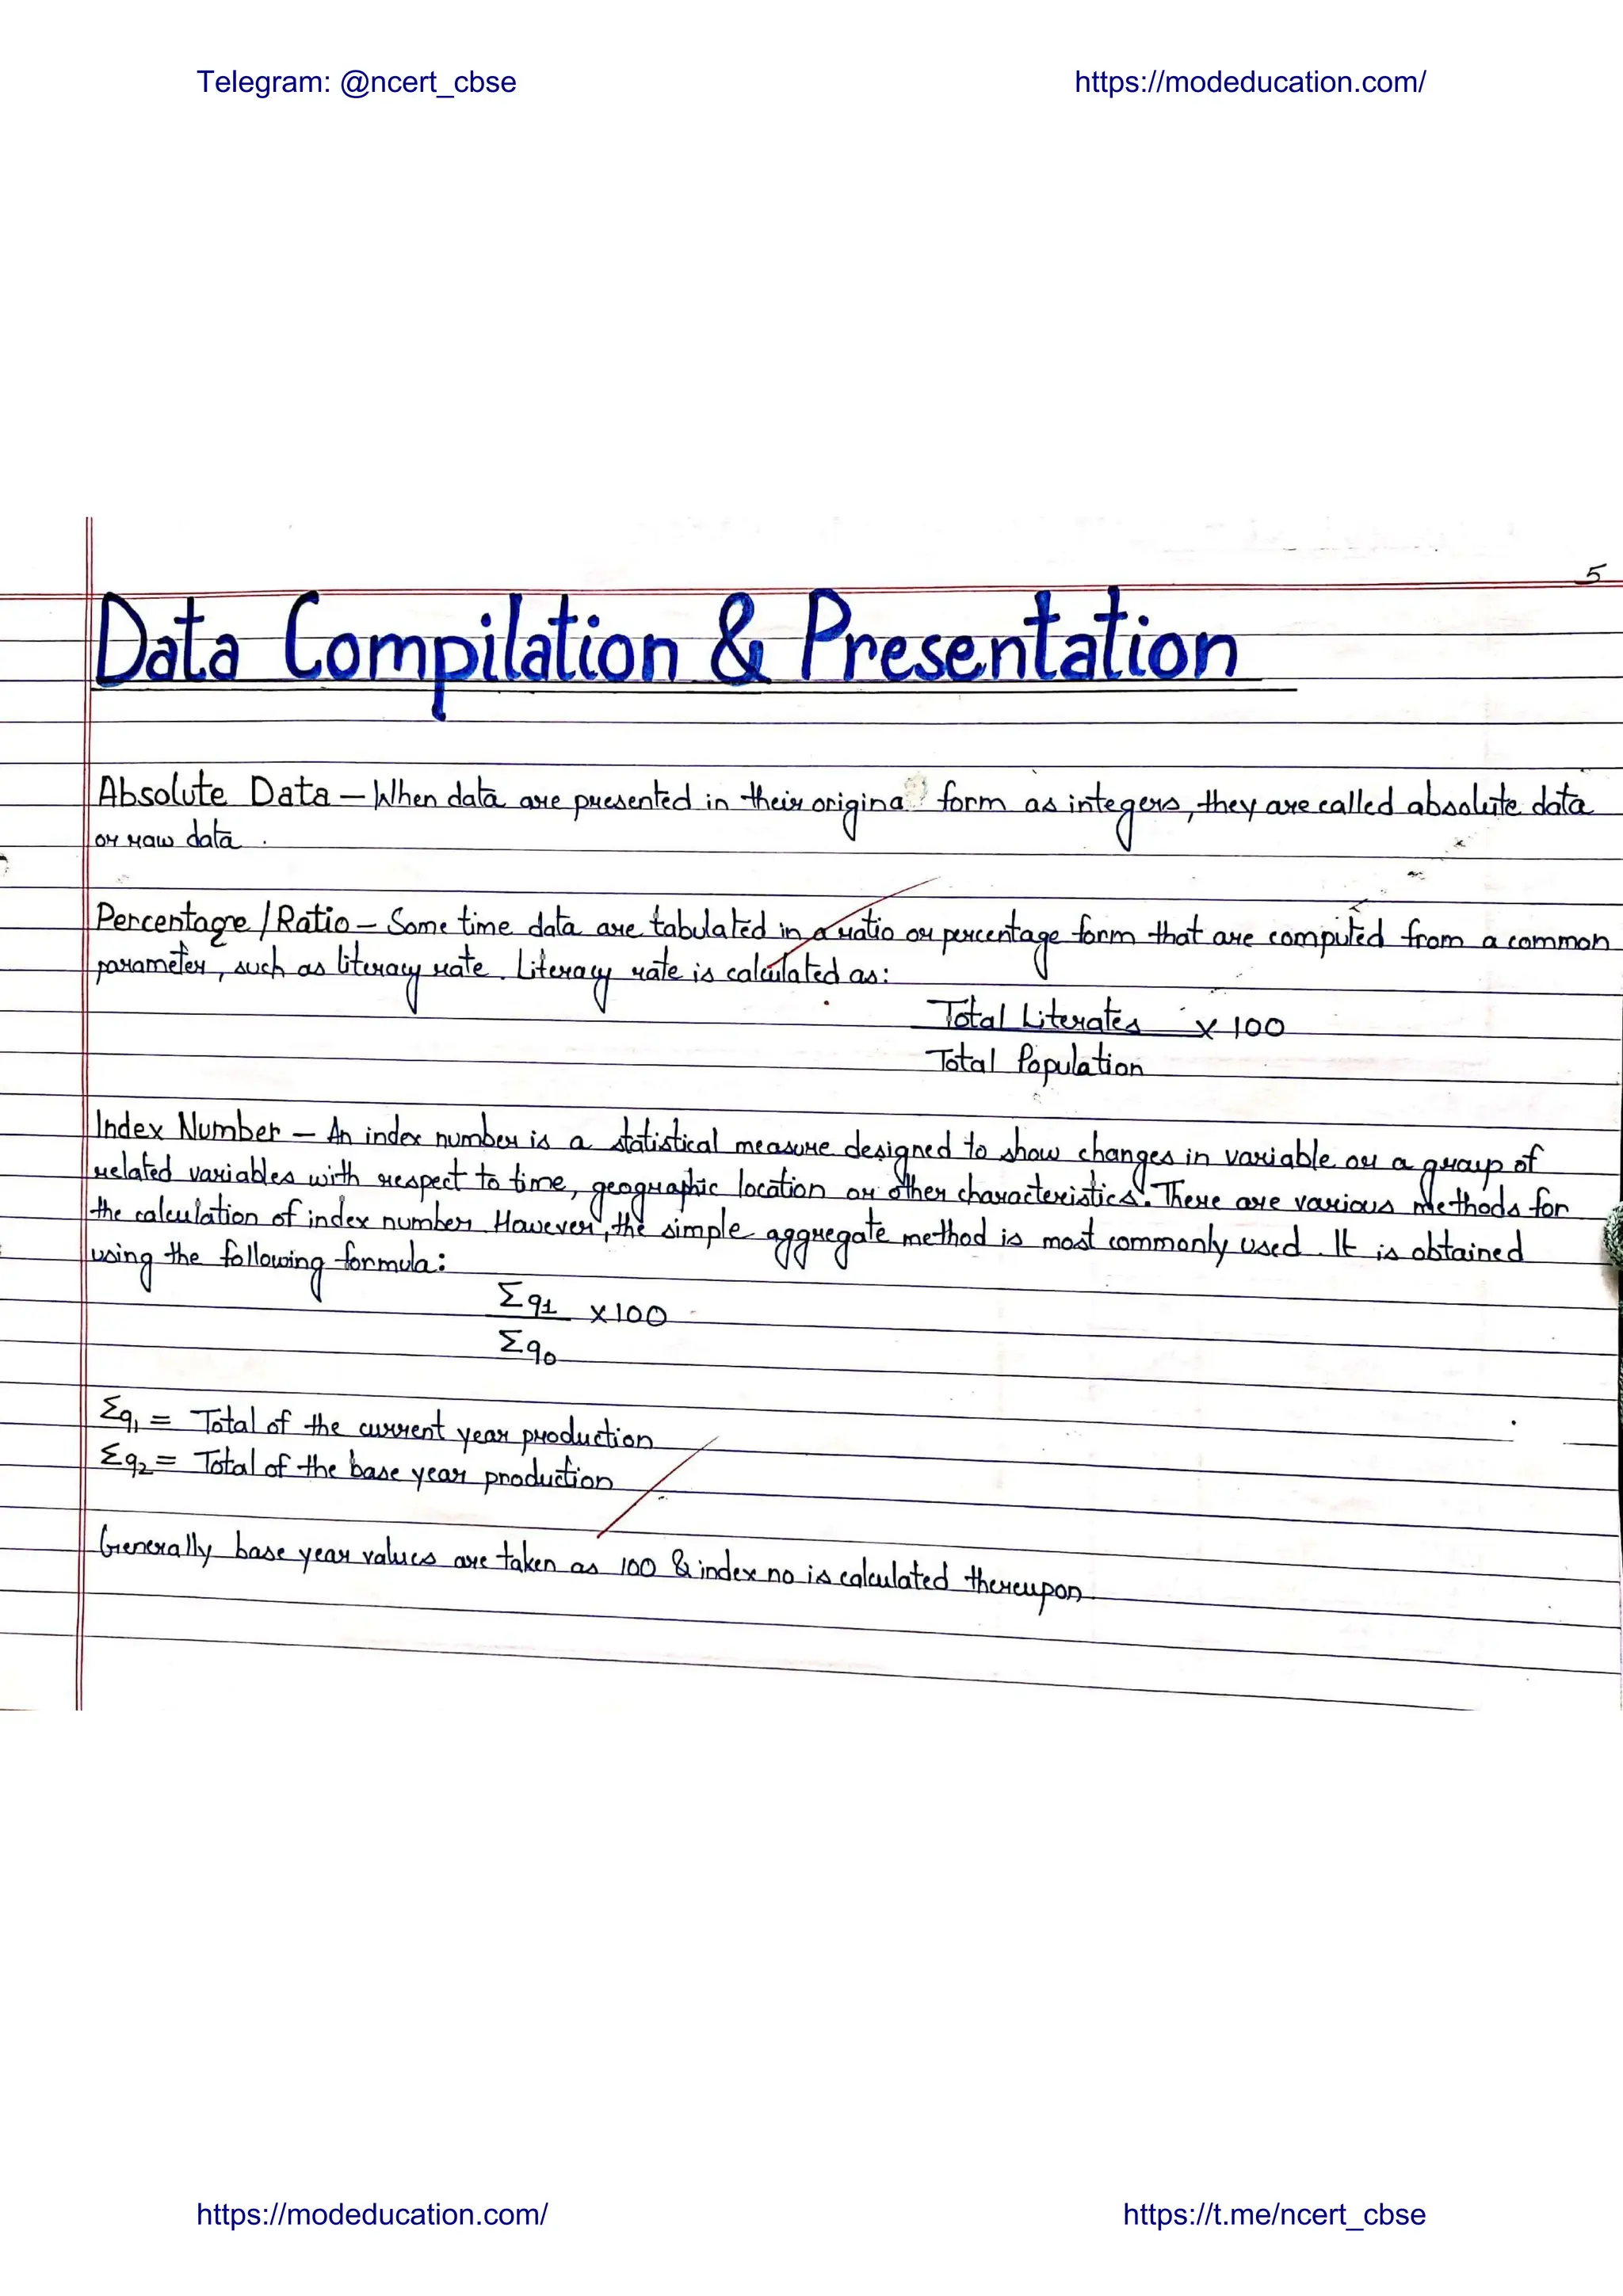 Telegram: @ncert_cbse https://modeducation.com/
5
Data Compilation & Presentation
Absolute Data – When data are presented in their origina form as integers, they are called absolute data
or raw data.
Percentage / Ratio – Some time data are tabulated in a ratio or percentage form that are computed from a common
parameter, such as literacy rate. Literacy rate is calculated as:
Total Literates x 100
Total Population
Index Number – An index number is a statistical measure designed to show changes in variable or a group of
related variables with respect to time, geographic location or other characteristics. There are various methods for
the calculation of index number. However, the simple aggregate method is most commonly used. It is obtained
using the following formula:
Σq1 x100
Σq0
Σq1 = Total of the current year production
Σq2 = Total of the base year production
Generally base year values are taken as 100 & index no is calculated thereupon.
https://modeducation.com/ https://t.me/ncert_cbse